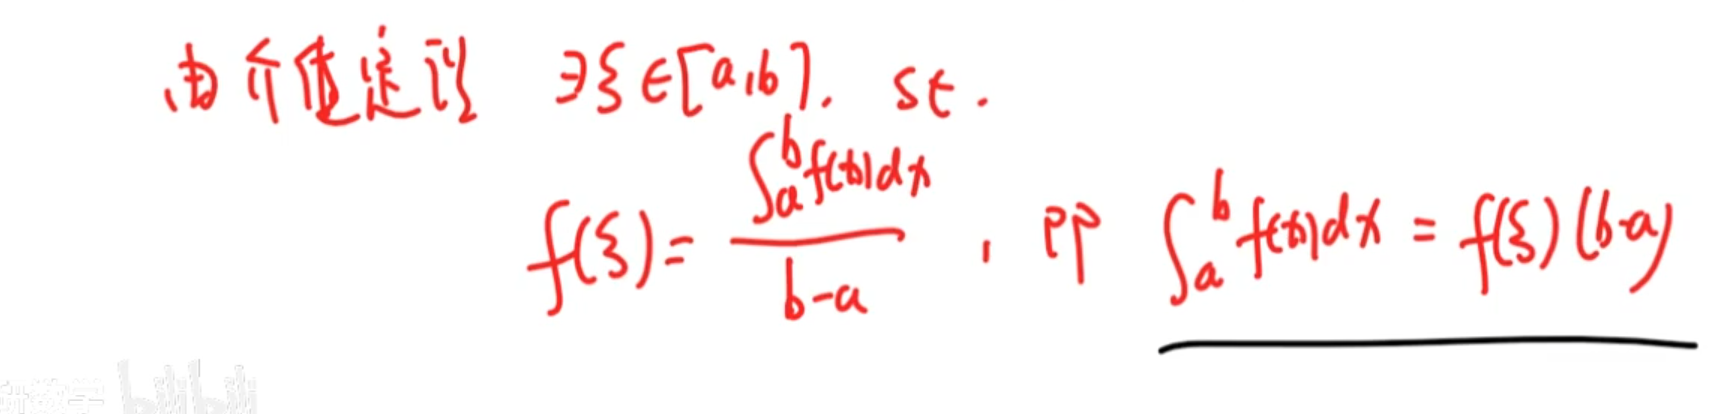 由介值定理 ∃ξ∈[a,b]. st.
f(ξ)=∫_a^b f(x)dx/(b-a), 即 ∫_a^b f(x)dx = f(ξ)(b-a)
研数学 bilibili